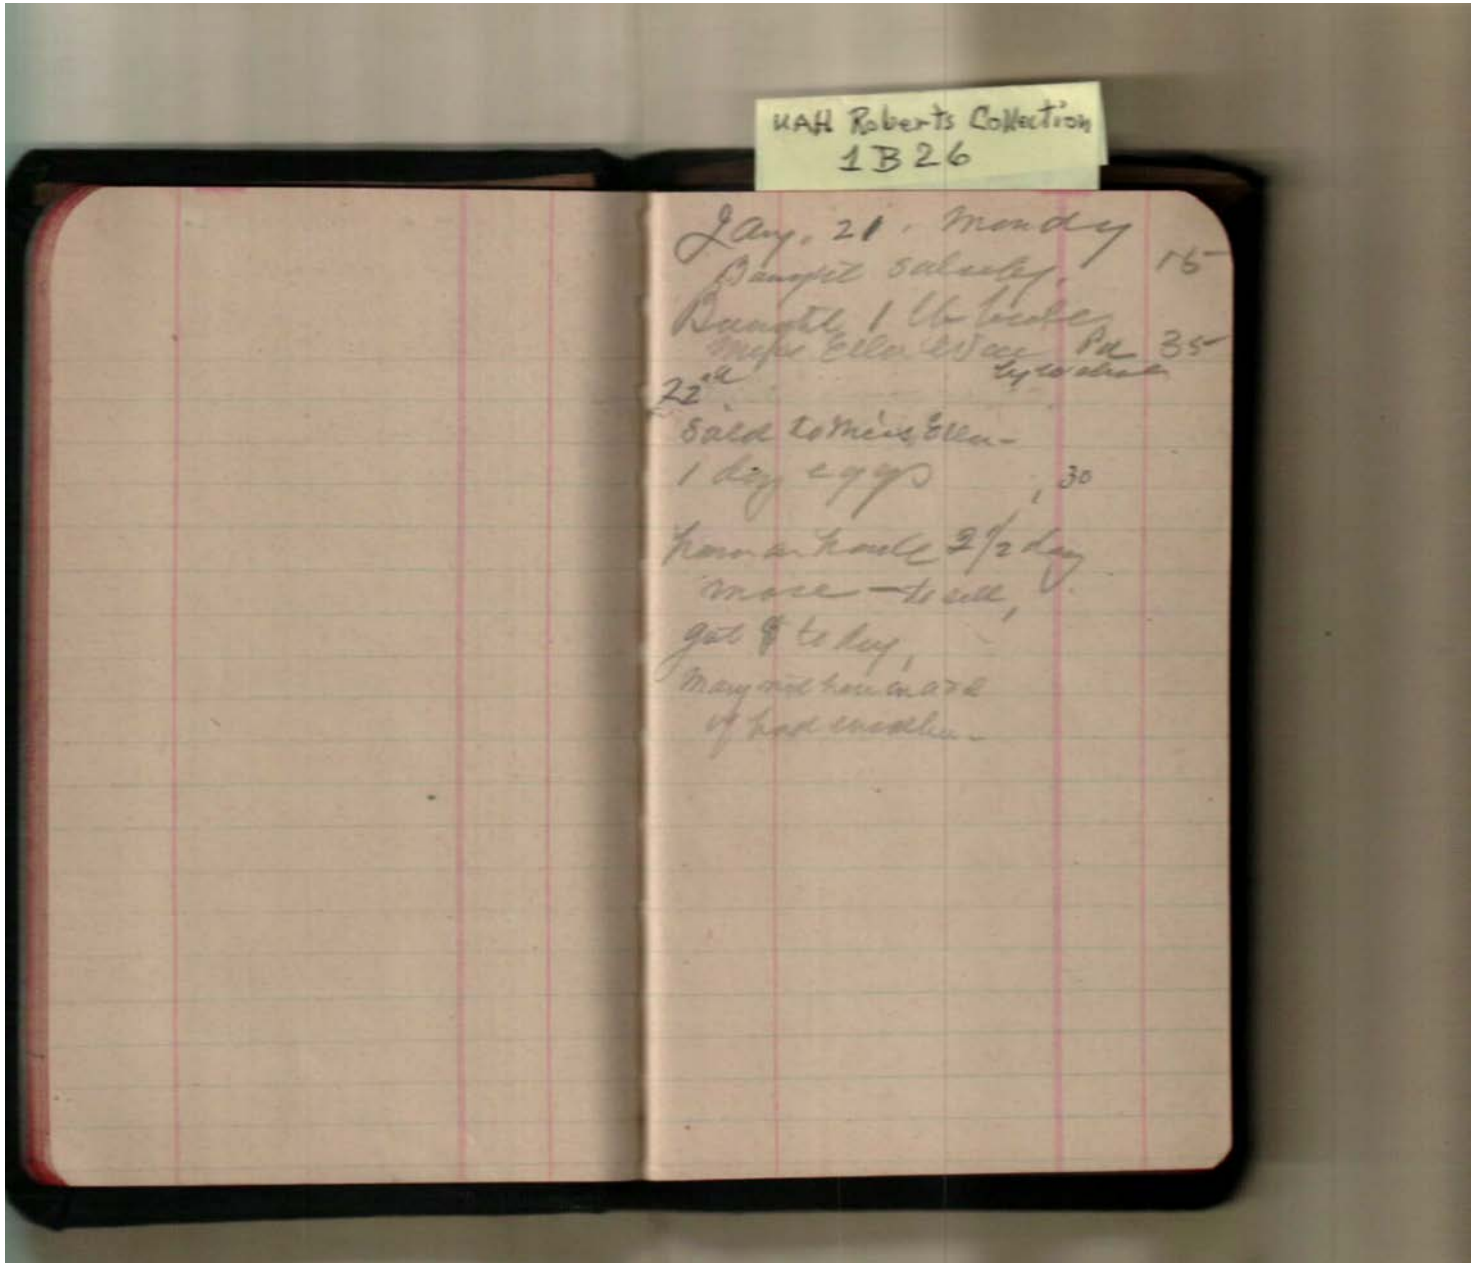 UAH Roberts Collection
1B26
Jany. 21. Monday
Bought salsify, 15
Bought 1 lb
Miss Ella Pd 35
by
22nd
Sold to Miss Ella-
1 doz eggs , 30
have on hand 2 1/2 doz
more - to sell,
got 8 to day,
Mary not here on a/c
of bad weather-